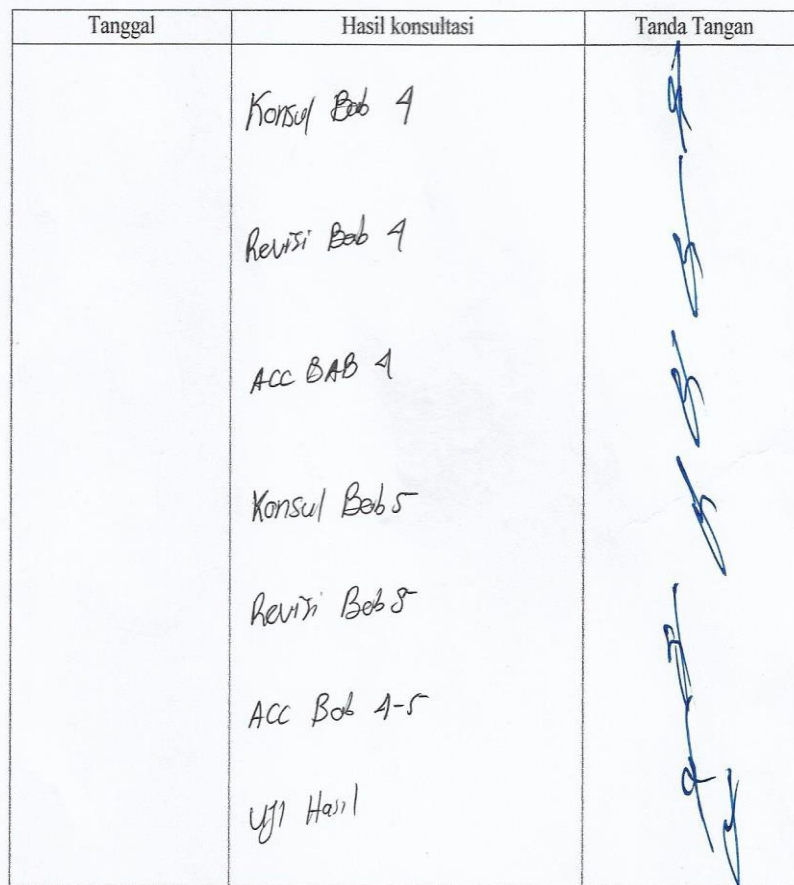 Tanggal Hasil konsultasi Tanda Tangan
Konsul Bab 4
Revisi Bab 4
ACC BAB 4
Konsul Bab 5
Revisi Bab 5
ACC Bab 4-5
Uji Hasil